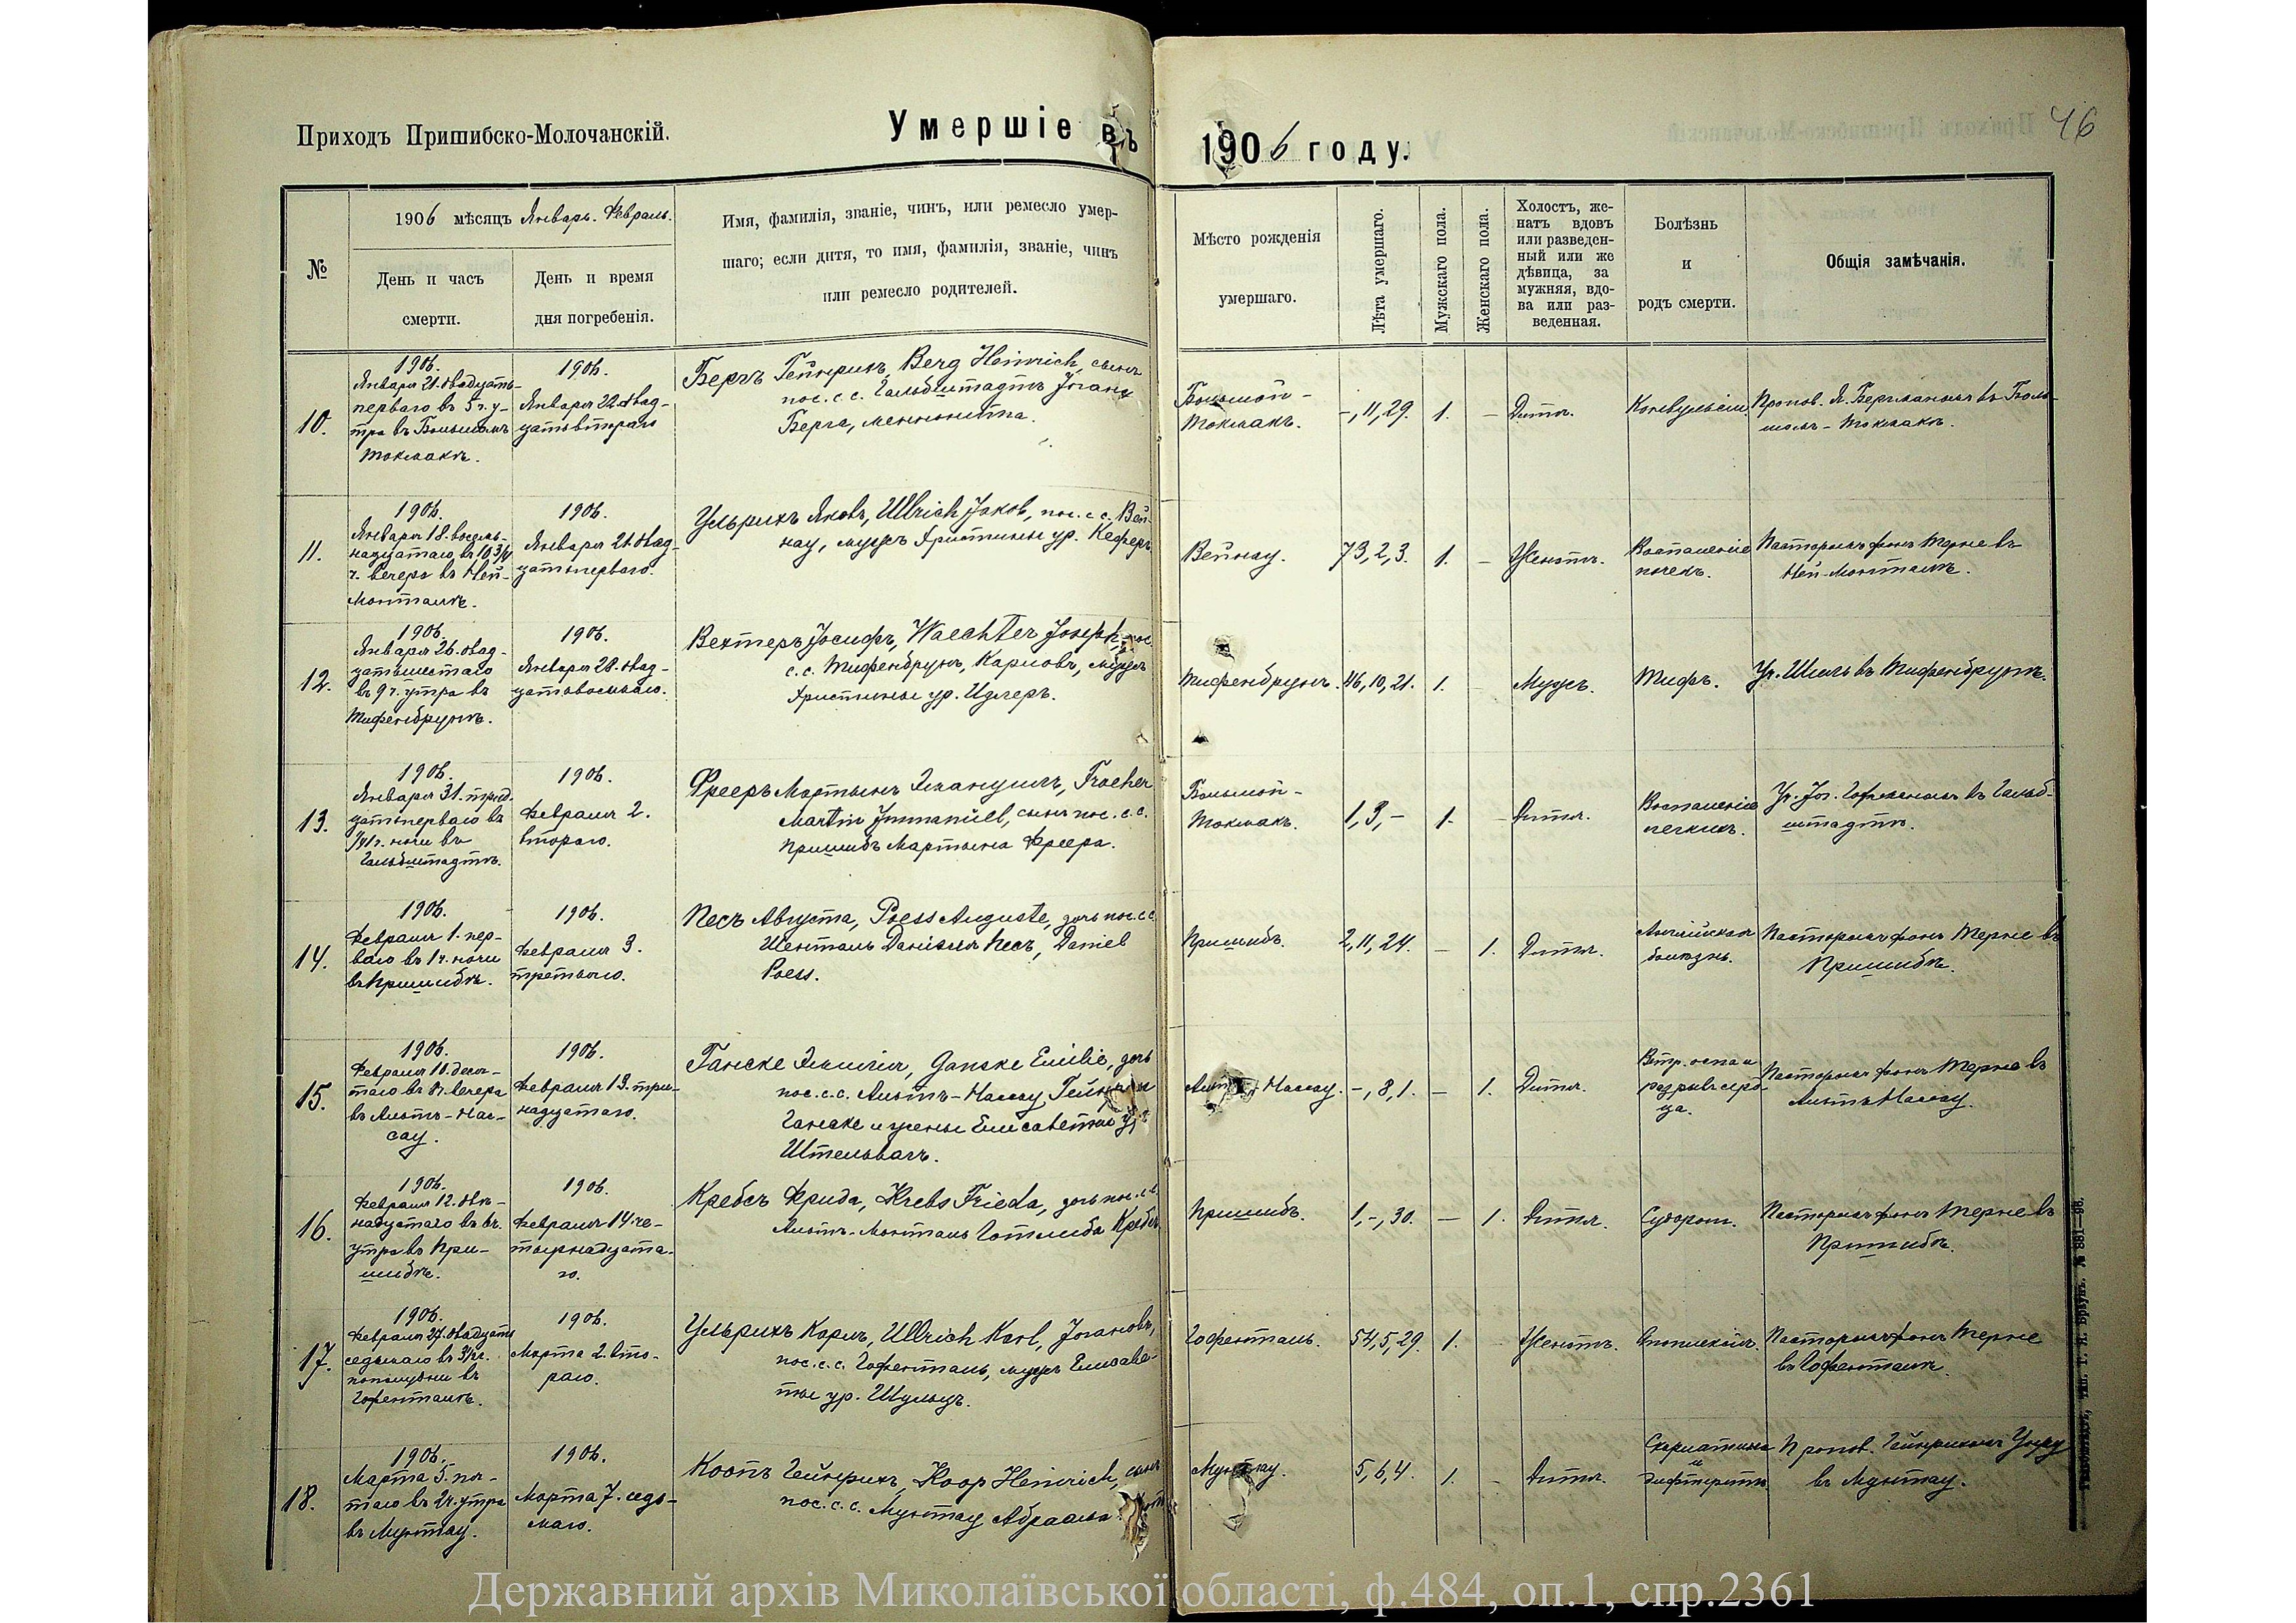 Приходъ Пришибско-Молочанскій.
Умершіе въ
1906 году.
46
№
1906 мѣсяцъ Январь. Февраль.
День и часъ
смерти.
День и время
дня погребенія.
Имя, фамилія, званіе, чинъ, или ремесло умер-
шаго; если дитя, то имя, фамилія, званіе, чинъ
или ремесло родителей.
Мѣсто рожденія
умершаго.
Лѣта умершаго.
Мужскаго пола.
Женскаго пола.
Холостъ, же-
натъ вдовъ
или разведен-
ный или же
дѣвица, за
мужняя, вдо-
ва или раз-
веденная.
Болѣзнь
и
родъ смерти.
Общія замѣчанія.
10.
1906.
Января 21. двадцать-
перваго въ 5 ч. у-
тра въ Большомъ
Токмакѣ.
1906.
Января 22. двад-
цатьвтораго
Бергъ Гейнрихъ, Berg Heinrich, сынъ
пос. с. с. Гальбштадтъ Іоганна
Берга, меннонита.
Большой-
Токмакъ.
-, 11, 29.
1.
-
Дитя.
Конвульсіи.
Пропов. Я. Бергманомъ въ Боль-
шомъ-Токмакѣ.
11.
1906.
Января 18. восем-
надцатаго въ 10 3/4
ч. вечера въ Ней-
Монталѣ.
1906.
Января 21. двад-
цатьперваго.
Ульрихъ Яковъ, Ullrich Jakob, пос. с. с. Вей-
нау, мужъ Христины ур. Кеферъ
Вейнау.
73, 2, 3.
1.
-
Женатъ.
Воспаленіе
почекъ.
Пасторомъ фонъ Терне въ
Ней-Монталѣ.
12.
1906.
Января 26. двад-
цатьшестаго
въ 9 ч. утра въ
Тифенбрунѣ.
1906.
Января 28. двад-
цатьвосьмаго.
Вехтеръ Іосифъ, Waechter Joseph, пос.
с. с. Тифенбрунъ, Карловъ, мужъ
Христины ур. Идлеръ.
Тифенбрунъ.
46, 10, 21.
1.
Мужъ.
Тифъ.
Уч. Шоль въ Тифенбрунѣ.
13.
1906.
Января 31. трид-
цатьперваго въ
ч. ночи въ
Гальбштадтѣ.
1906.
Февраля 2.
втораго.
Фрееръ Мартынъ Эмануилъ, Froeher
Martin Immanuel, сынъ пос. с. с.
Пришибъ Мартына Фреера.
Большой-
Токмакъ.
1, 3, -
1.
-
Дитя.
Воспаленіе
легкихъ.
Уч. Іог. Гофманомъ въ Гальб-
штадтѣ.
14.
1906.
Февраля 1. пер-
ваго въ 1 ч. ночи
въ Пришибѣ.
1906.
Февраля 3.
третьяго.
Песъ Августа, Poess Auguste, дочь пос. с. с.
Шенталь Даніила Песъ, Daniel
Poess.
Пришибъ.
2, 11, 24.
-
1.
Дитя.
Англійская
болѣзнь.
Пасторомъ фонъ Терне въ
Пришибѣ.
15.
1906.
Февраля 10. деся-
таго въ 8 ч. вечера
въ Альтъ-Нас-
сау.
1906.
Февраля 13. три-
надцатаго.
Ганске Эмилія, Ganske Emilie, дочь
пос. с. с. Альтъ-Нассау
Ганске и жены Елисаветы ур.
Штельвагъ.
Нассау.
-, 8, 1.
-
1.
Дитя.
Вѣтр. оспа и
разрывъ серд-
ца.
Пасторомъ фонъ Терне въ
Альтъ Нассау.
16.
1906.
Февраля 12. двѣ-
надцатаго въ 6 ч.
утра въ При-
шибѣ.
1906.
Февраля 14. че-
тырнадцата-
го.
Кребсъ Фрида, Krebs Frieda, дочь пос. с. с.
Альтъ-Монталь Готлиба Кребсъ
Пришибъ.
1, -, 30.
-
1.
Дитя.
Судороги.
Пасторомъ фонъ Терне въ
Пришибѣ.
17.
1906.
Февраля 27. двадцать
седьмаго въ 3 1/2 ч.
пополудни въ
Гофенталѣ.
1906.
Марта 2. вто-
раго.
Ульрихъ Карлъ, Ullrich Karl, Іогановъ,
пос. с. с. Гофенталь, мужъ Елисаве-
ты ур. Шульцъ.
Гофенталь.
54, 5, 29.
1.
-
Женатъ.
Апоплексія.
Пасторомъ фонъ Терне
въ Гофенталѣ.
18.
1906.
Марта 5. пя-
таго въ 2 ч. утра
въ Мунтау.
1906.
Марта 7. седь-
маго.
Коопъ Гейнрихъ, Koop Heinrich, сынъ
пос. с. с. Мунтау Абраама
Мунтау.
5, 6, 4.
1.
-
Дитя.
Скарлатина
и
дифтеритъ
Пропов. Гейнрихомъ Унру
въ Мунтау.
Державний архів Миколаївської області, ф.484, оп.1, спр.2361